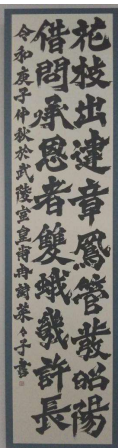 花枝出建章鳳管發昭陽
借問承恩者雙蛾幾許長
令和庚子仲秋於武陵室皇甫冉詩 々子書